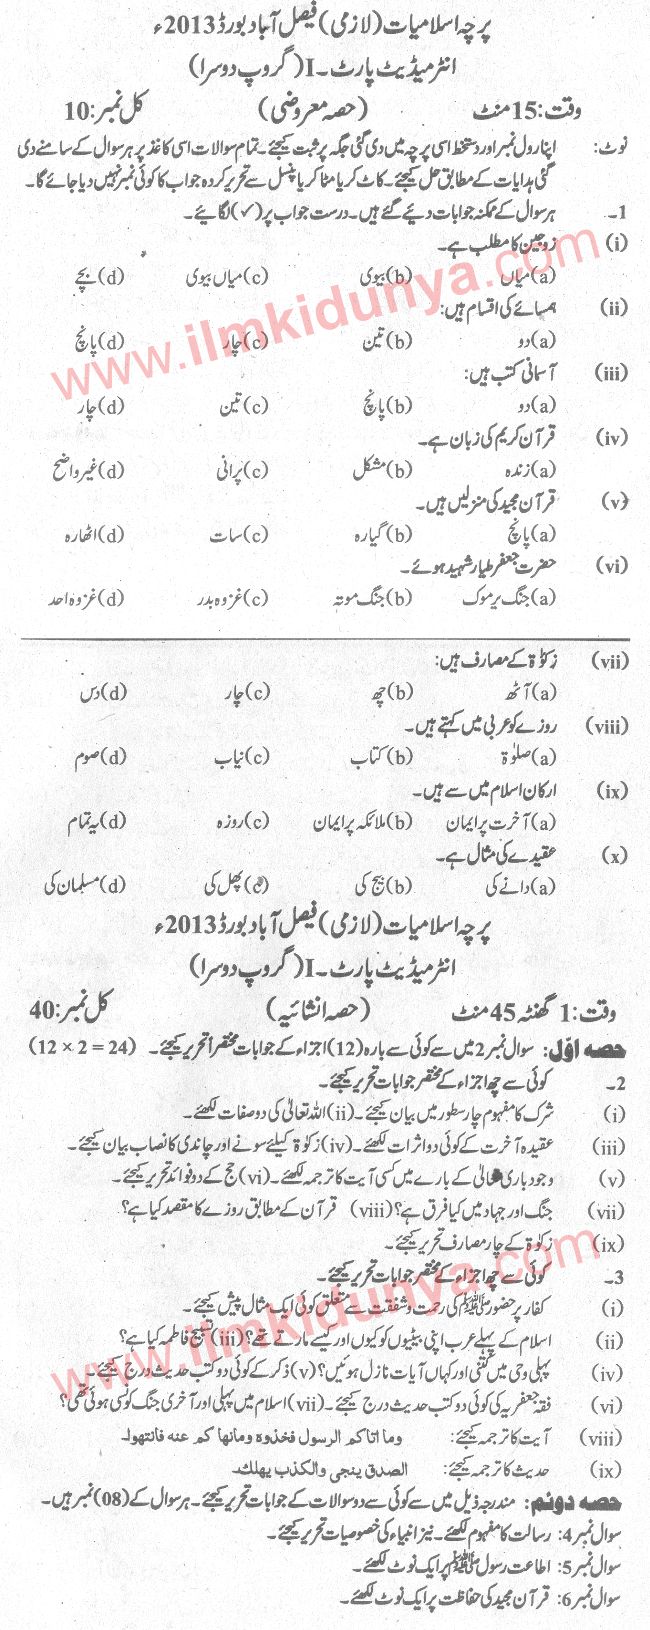 پرچہ اسلامیات (لازمی) فیصل آباد بورڈ 2013ء
انٹرمیڈیٹ پارٹ۔I (گروپ دوسرا)
وقت: 15 منٹ (حصہ معروضی) کل نمبر: 10
نوٹ: اپنا رول نمبر اور دستخط اسی پرچہ میں دی گئی جگہ پر ثبت کیجئے۔ تمام سوالات اسی کاغذ پر ہر سوال کے سامنے دی
گئی ہدایات کے مطابق حل کیجئے۔ کاٹ کر یا مٹا کر یا پنسل سے تحریر کردہ جواب کا کوئی نمبر نہیں دیا جائے گا۔
1۔ ہر سوال کے ممکنہ جوابات دیئے گئے ہیں۔ درست جواب پر (✓) لگائیے۔
(i) زوجین کا مطلب ہے۔
(a) میاں (b) بیوی (c) میاں بیوی (d) بچے
(ii) ہمسائے کی اقسام ہیں:
(a) دو (b) تین (c) چار (d) پانچ
(iii) آسمانی کتب ہیں:
(a) دو (b) پانچ (c) تین (d) چار
(iv) قرآن کریم کی زبان ہے۔
(a) زندہ (b) مشکل (c) پرانی (d) غیر واضح
(v) قرآن مجید کی منزلیں ہیں۔
(a) پانچ (b) گیارہ (c) سات (d) اٹھارہ
(vi) حضرت جعفر طیار شہید ہوئے۔
(a) جنگ یرموک (b) جنگ موتہ (c) غزوہ بدر (d) غزوہ احد
(vii) زکوٰۃ کے مصارف ہیں:
(a) آٹھ (b) چھ (c) چار (d) دس
(viii) روزے کو عربی میں کہتے ہیں۔
(a) صلوٰۃ (b) کتاب (c) نیاب (d) صوم
(ix) ارکان اسلام میں سے ہیں۔
(a) آخرت پر ایمان (b) ملائکہ پر ایمان (c) روزہ (d) یہ تمام
(x) عقیدے کی مثال ہے۔
(a) دانے کی (b) بیج کی (c) پھل کی (d) مسلمان کی
پرچہ اسلامیات (لازمی) فیصل آباد بورڈ 2013ء
انٹرمیڈیٹ پارٹ۔I (گروپ دوسرا)
وقت: 1 گھنٹہ 45 منٹ (حصہ انشائیہ) کل نمبر: 40
حصہ اوّل: سوال نمبر 2 میں سے کوئی سے بارہ (12) اجزاء کے جوابات مختصراً تحریر کیجئے۔ (12 × 2 = 24)
2۔ کوئی سے چھ اجزاء کے مختصر جوابات تحریر کیجئے۔
(i) شرک کا مفہوم چار سطور میں بیان کیجئے۔ (ii) اللہ تعالیٰ کی دو صفات لکھئے۔
(iii) عقیدہ آخرت کے کوئی دو اثرات لکھئے۔ (iv) زکوٰۃ کیلئے سونے اور چاندی کا نصاب بیان کیجئے۔
(v) وجود باری تعالیٰ کے بارے میں کسی آیت کا ترجمہ لکھئے۔ (vi) حج کے دو فوائد تحریر کیجئے۔
(vii) جنگ اور جہاد میں کیا فرق ہے؟ (viii) قرآن کے مطابق روزے کا مقصد کیا ہے؟
(ix) زکوٰۃ کے چار مصارف تحریر کیجئے۔
3۔ کوئی سے چھ اجزاء کے مختصر جوابات تحریر کیجئے۔
(i) کفار پر حضور ﷺ کی رحمت و شفقت سے متعلق کوئی ایک مثال پیش کیجئے۔
(ii) اسلام کے پہلے عرب اپنی بیٹیوں کو کیوں اور کیسے مارتے تھے؟ (iii) تسبیح فاطمہ کیا ہے؟
(iv) پہلی وحی میں کتنی اور کہاں آیات نازل ہوئیں؟ (v) ذکر کے کوئی دو کتب حدیث درج کیجئے۔
(vi) فقہ جعفریہ کی کوئی دو کتب حدیث درج کیجئے۔ (vii) اسلام میں پہلی اور آخری جنگ کونسی ہوئی تھی؟
(viii) آیت کا ترجمہ کیجئے: وما اتاكم الرسول فخذوه ومانهاكم عنه فانتهوا۔
(ix) حدیث کا ترجمہ کیجئے: الصدق ينجى والكذب يهلك۔
حصہ دوئم: مندرجہ ذیل میں سے کوئی سے دو سوالات کے جوابات تحریر کیجئے۔ ہر سوال کے (08) نمبر ہیں۔
سوال نمبر 4: رسالت کا مفہوم لکھئے۔ نیز انبیاء کی خصوصیات تحریر کیجئے۔
سوال نمبر 5: اطاعت رسول ﷺ پر ایک نوٹ لکھئے۔
سوال نمبر 6: قرآن مجید کی حفاظت پر ایک نوٹ لکھئے۔
www.ilmkidunya.com
www.ilmkidunya.com